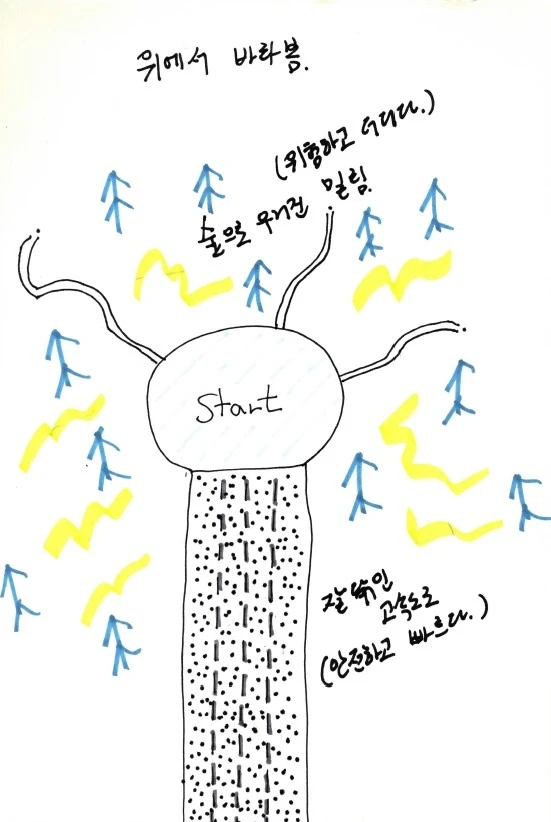 위에서 바라봄.
(위험하고 더디다.)
숲으로 우거진 밀림.
Start
잘 뚫인
고속도로
(안전하고 빠르다.)